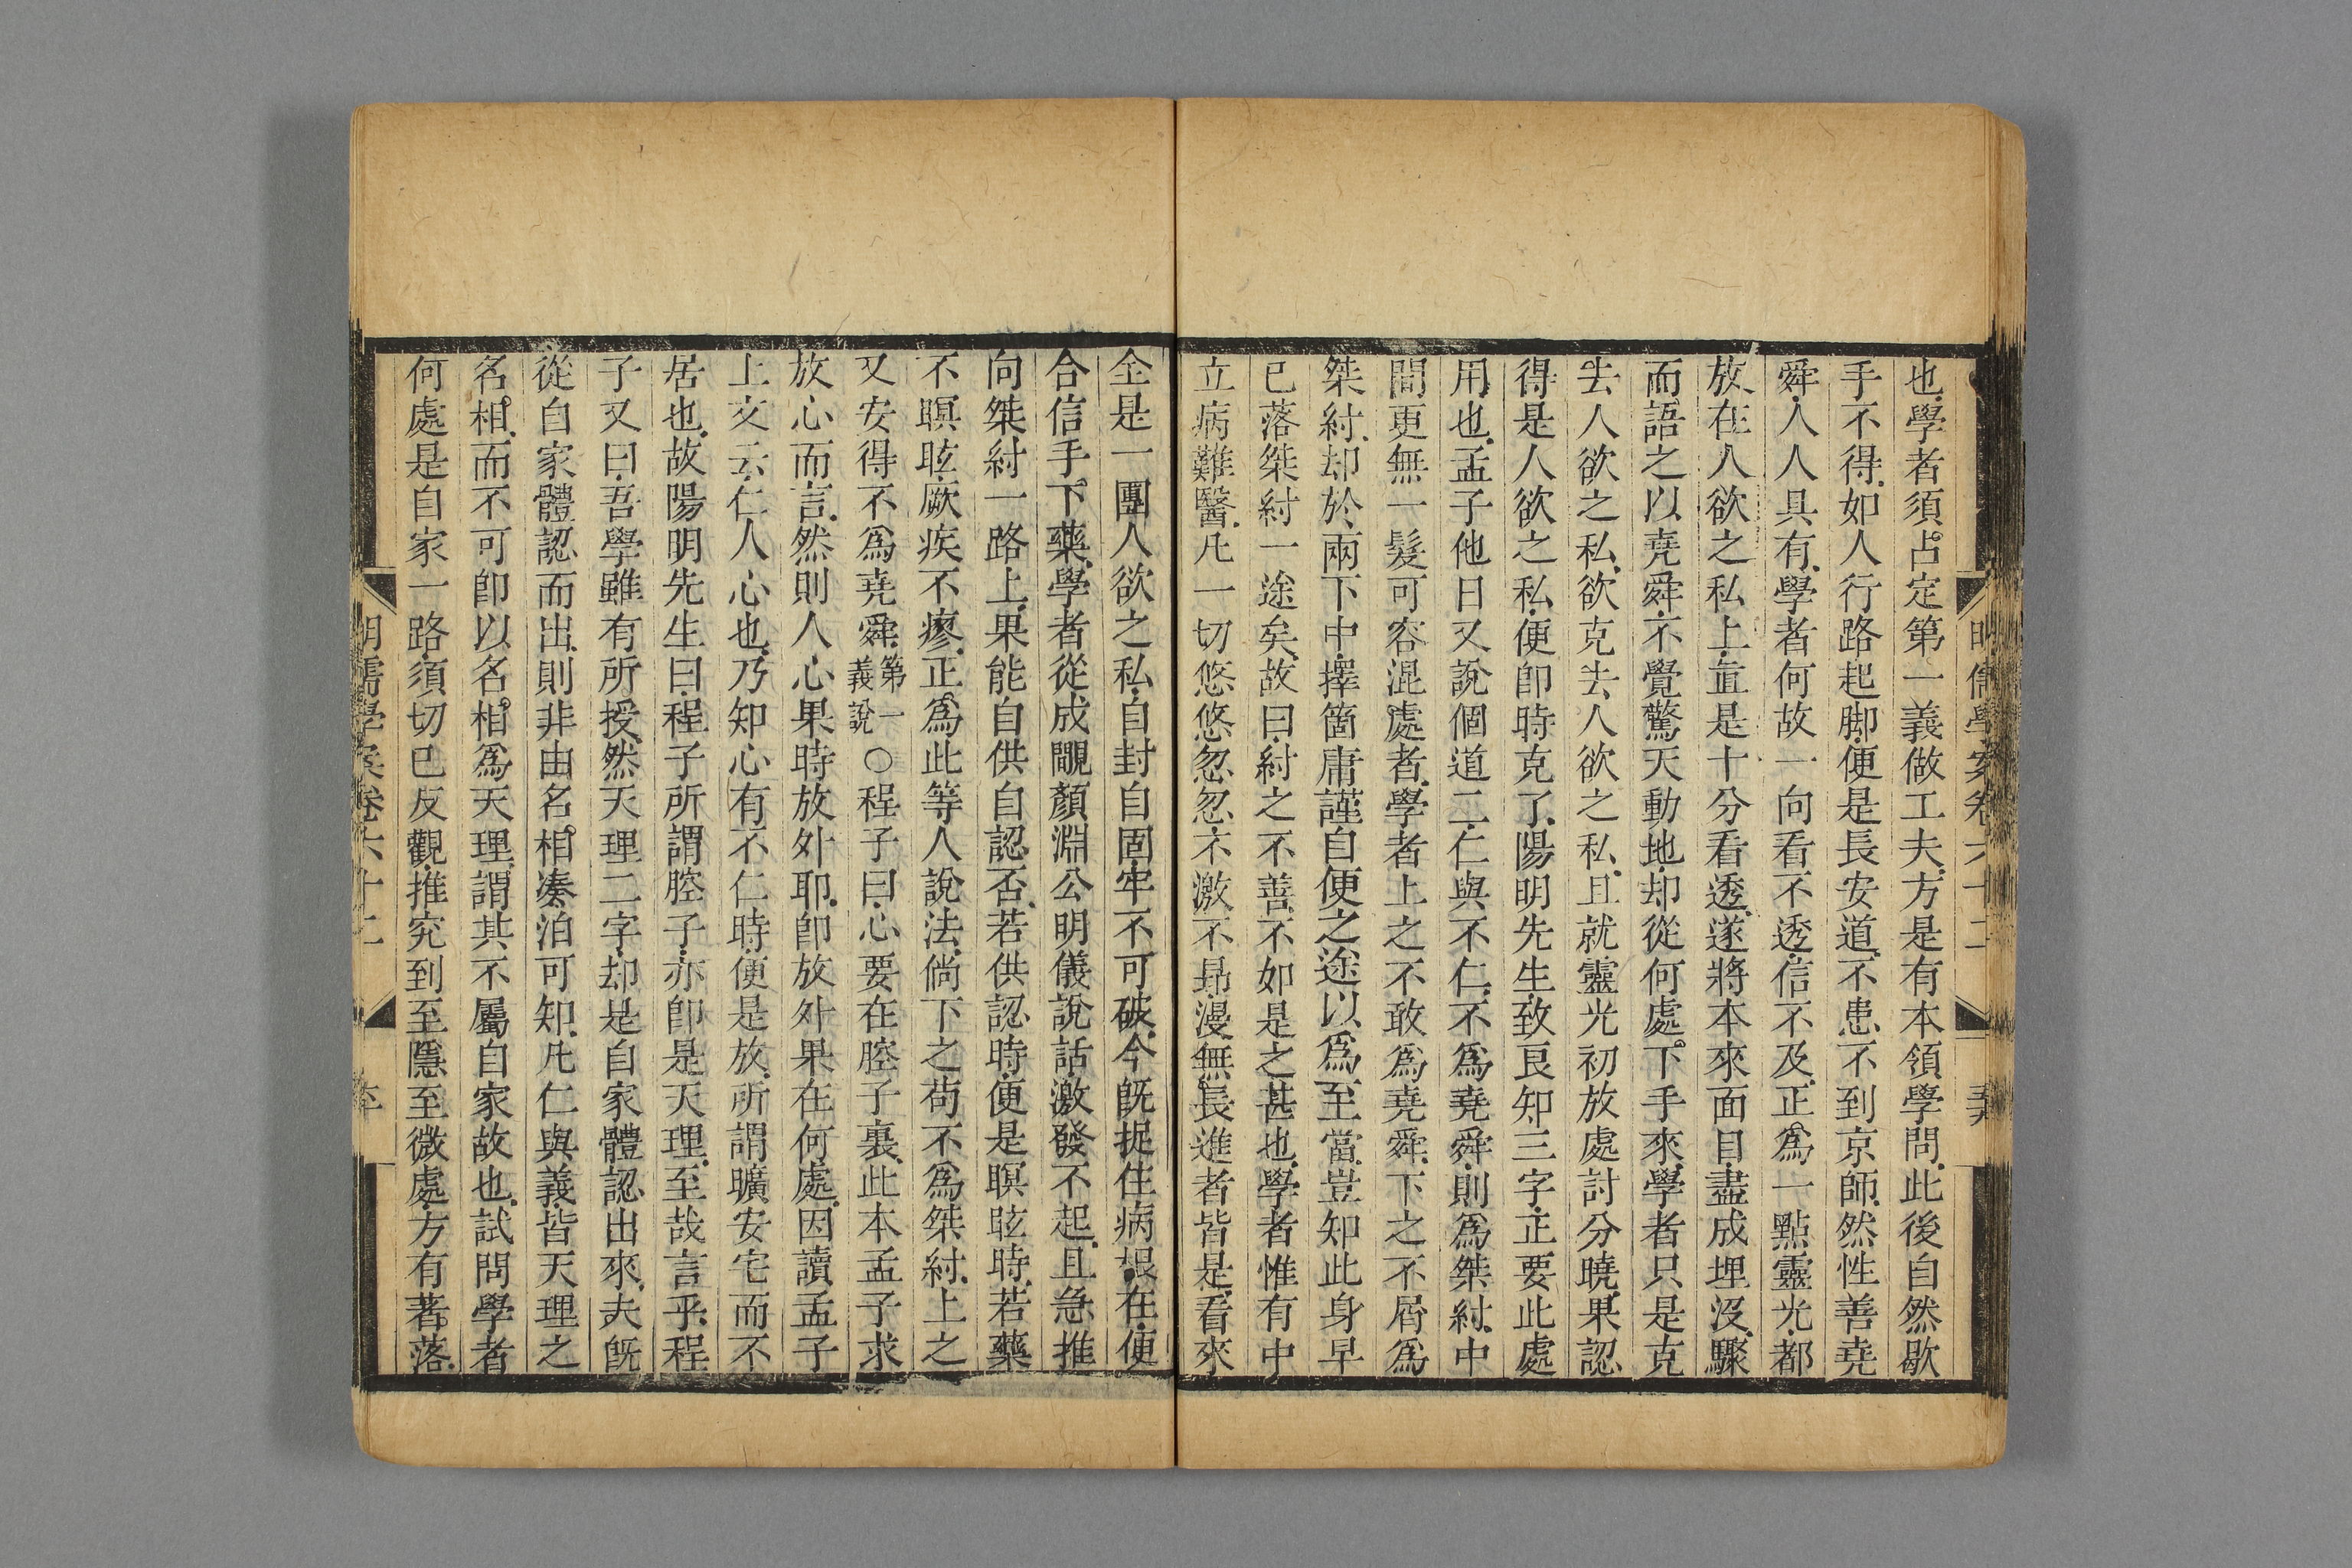 也學者須占定第一義做工夫方是有本領學問此後自然歇
手不得如人行路起脚便是長安道不患不到京師然性善堯
舜人人具有學者何故一向看不透信不及正爲一點靈光都
放在人欲之私上直是十分看透遂將本來面目盡成埋沒驟
而語之以堯舜不覺驚天動地却從何處下手來學者只是克
去人欲之私欲克去人欲之私且就靈光初放處討分曉果認
得是人欲之私便卽時克了陽明先生致良知三字正要此處
用也孟子他日又說個道二仁與不仁不爲堯舜則爲桀紂中
間更無一髮可容混處者學者上之不敢爲堯舜下之不屑爲
桀紂却於兩下中擇箇庸謹自便之途以爲至當豈知此身早
已落桀紂一途矣故曰紂之不善不如是之甚也學者惟有中
立病難醫凡一切悠悠忽忽不激不昻漫無長進者皆是看來
全是一團人欲之私自封自固牢不可破今旣捉住病根在便
合信手下藥學者從成覸顏淵公明儀說話激發不起且急推
向桀紂一路上果能自供自認否若供認時便是瞑眩時若藥
不瞑眩厥疾不瘳正爲此等人說法倘下之苟不爲桀紂上之
又安得不爲堯舜第一義說○程子曰心要在腔子裏此本孟子求
放心而言然則人心果時放外耶卽放外果在何處因讀孟子
上文云仁人心也乃知心有不仁時便是放所謂曠安宅而不
居也故陽明先生曰程子所謂腔子亦卽是天理至哉言乎程
子又曰吾學雖有所授然天理二字却是自家體認出來夫旣
從自家體認而出則非由名相湊泊可知凡仁與義皆天理之
名相而不可卽以名相爲天理謂其不屬自家故也試問學者
何處是自家一路須切己反觀推究到至隱至微處方有著落
明儒學案卷六十二